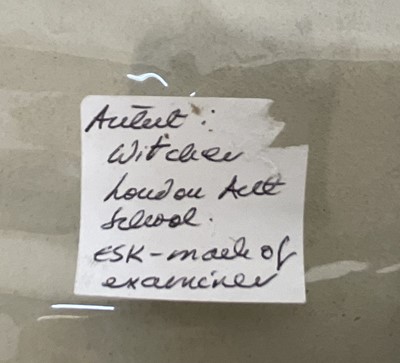 Artist:
Witcher
London Art
School.
ESK - mark of
examiner